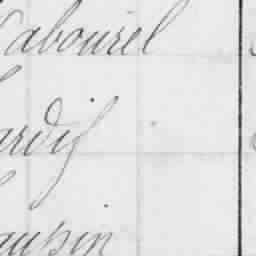 Cabourel
ardif
aupin